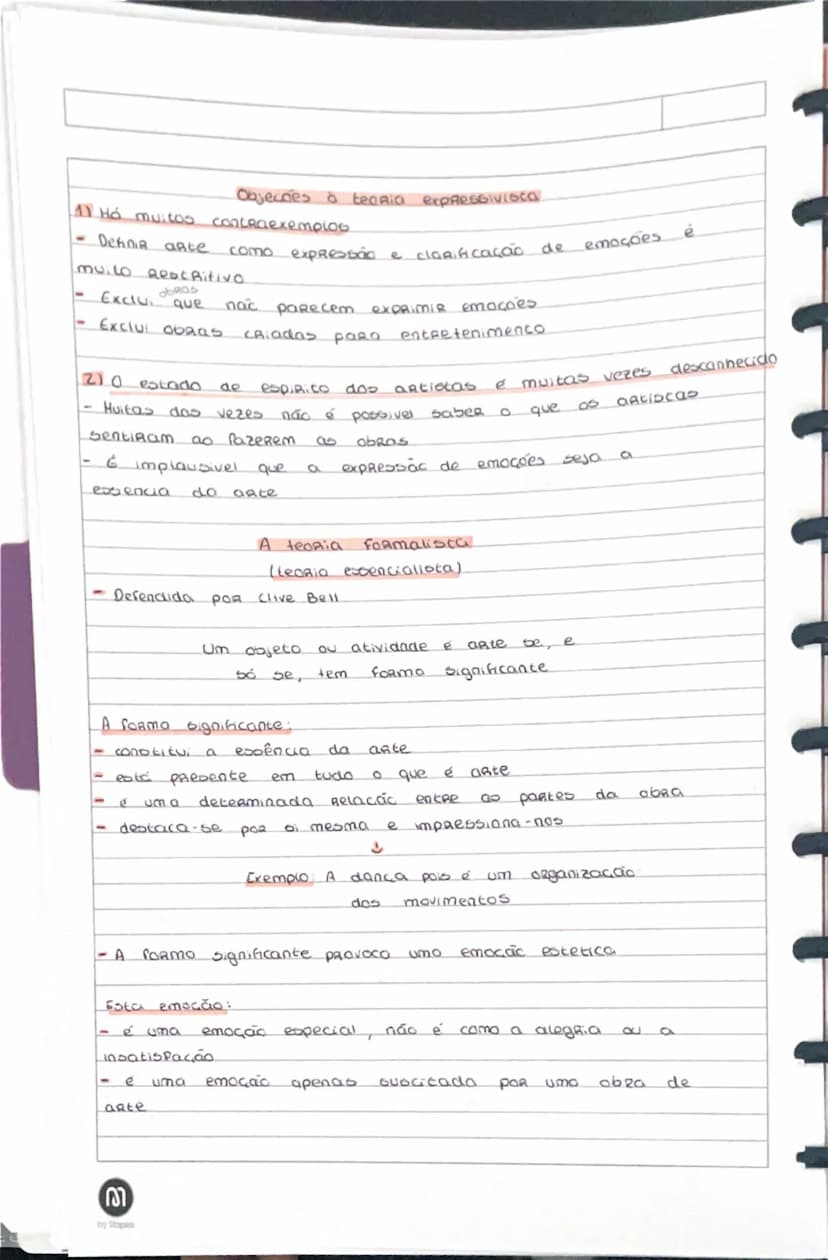 Objeções à teoria expressivista
1) Há muitos contraexemplos
- Definir arte como expressão e clarificação de emoções é
muito restritivo
- Exclui obras que não parecem exprimir emoções
- Exclui obras criadas para entretenimento
2) O estado de espirito dos artistas é muitas vezes desconhecido
- Muitas das vezes não é possivel saber o que os artistas
sentiram ao fazerem as obras
- É implausivel que a expressão de emoções seja a
essencia da arte
A teoria formalista
(teoria essencialista)
- Defendida por Clive Bell
Um objeto ou atividade é arte se, e
só se, tem forma significante
A forma significante:
- constitui a essência da arte
- está presente em tudo o que é arte
- é uma determinada relação entre as partes da obra
- destaca-se por si mesma e impressiona-nos
↓
Exemplo: A dança pois é um organização
dos movimentos
- A forma significante provoca uma emoção estetica
Esta emoção:
- é uma emoção especial, não é como a alegria ou a
insatisfação
- é uma emoção apenas suscitada por uma obra de
arte
M